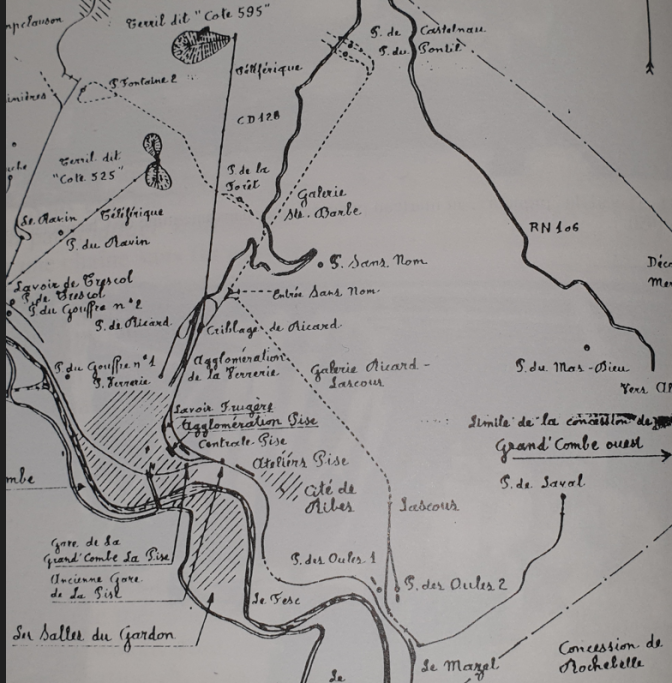 mpclauson
Terril dit "Cote 595"
P. de Castelnau
P. du Pontil
inières
P. Fontaine 2
Téléférique
CD 128
Terril dit
"Cote 525"
P de la
Forêt
Galerie
Ste. Barbe
Téléférique
Le. Ravin
P. du Ravin
RN 106
P. Sans Nom
Déco
Mer
Lavoir de Trescol
P. de Trescol
P. du Gouffre n° 2
Entrée Sans Nom
P. de Ricard
Criblage de Ricard
P. du Gouffre n° 1
P. Verrerie
Agglomération
de la Verrerie
Galerie Ricard -
Lascous
P. du Mas-Dieu
Vers
Lavoir Frugère
Agglomération Pise
Centrale Pise
Limite de la concession de
Grand'Combe ouest
mbe
Ateliers Pise
Cité de
Ribes
Lascous
P. de Laval
Gare. de La
Grand'Combe La Pise
Ancienne Gare
de La Pise
P. des Oules 1
P. des Oules 2
Le Fesc
Les Salles du Gardon
Le
Le Mazel
Concession de
Rochebelle